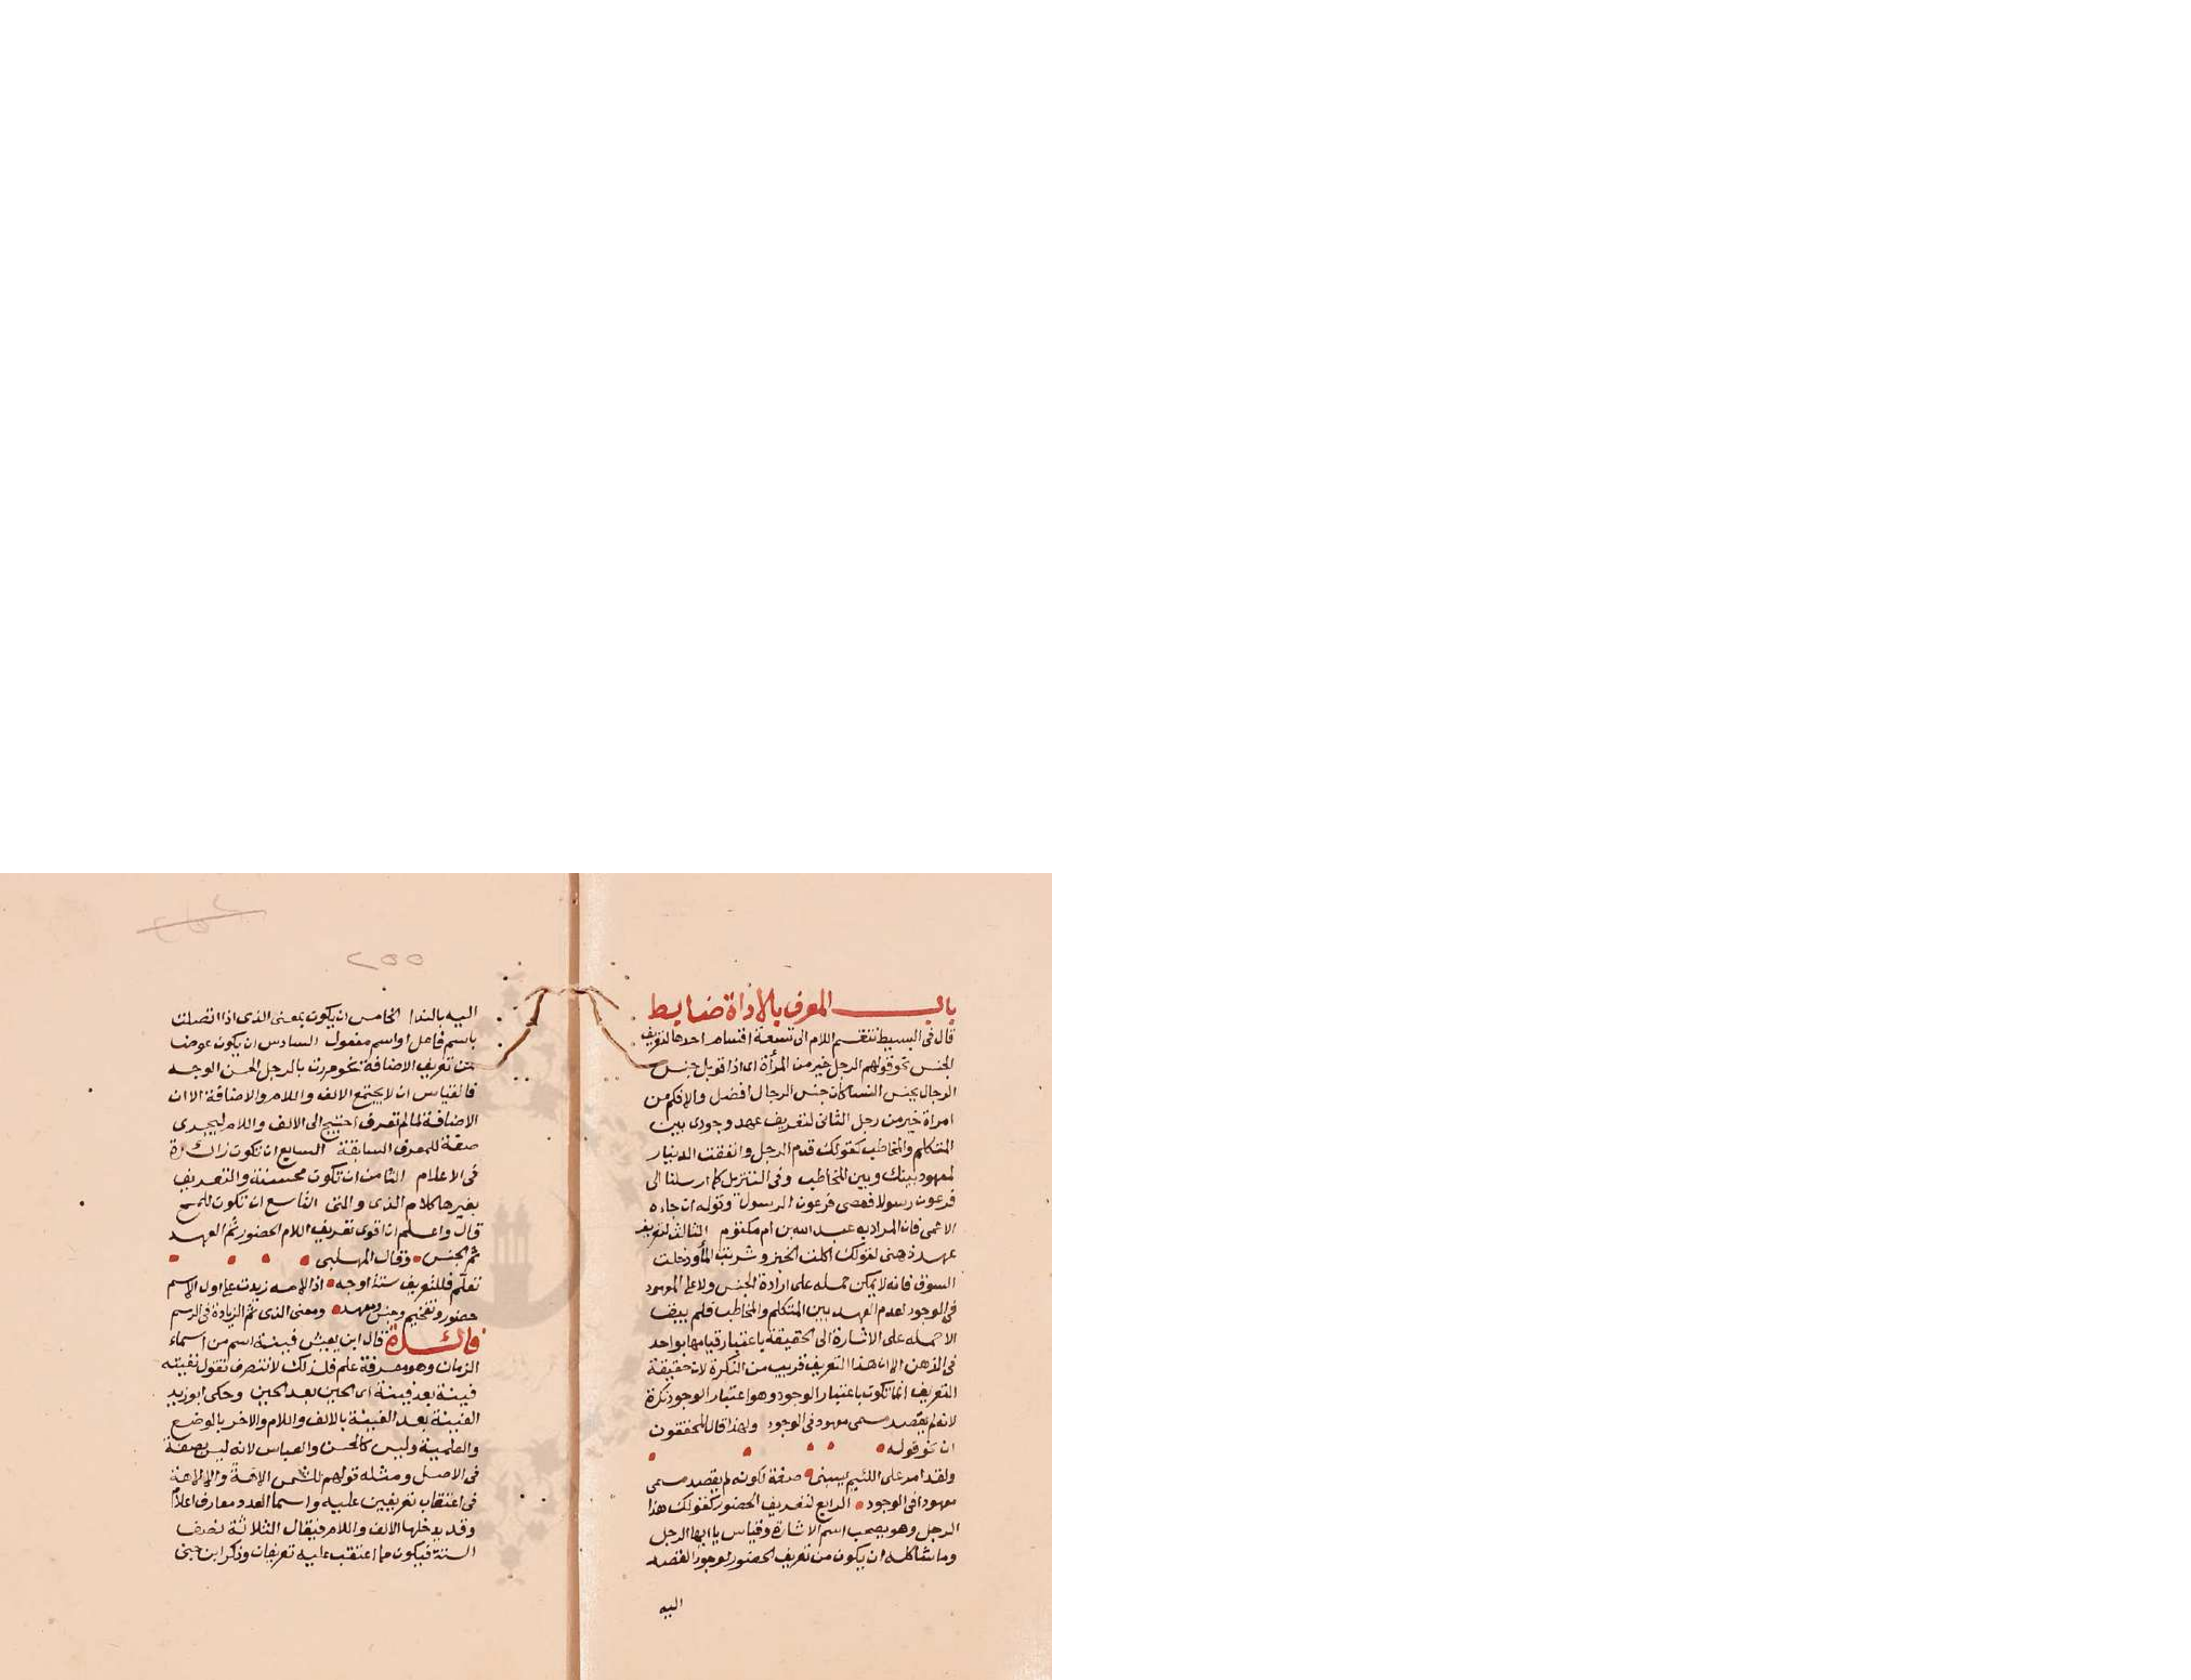 باب المعرف بالاداة ضابط
قال فى البسيط تنقسم اللام الى تسعة اقسام احدها لتعريف
الجنس نحو قولهم الرجل خير من المرأة اى اذا قوبل جنس
الرجال بجنس النسا كان جنس الرجال افضل والا فكم من
امراة خير من رجل الثانى لتعريف عهد وجودى بين
المتكلم والمخاطب كقولك قدم الرجل وانفقت الدينار
لمعهود بينك وبين المخاطب وفى التنزيل كما ارسلنا الى
فرعون رسولا فعصى فرعون الرسول وقوله ان جاءه
الاعمى فان المراد به عبد الله بن ام مكتوم الثالث لتعريف
عهد ذهنى لقولك اكلت الخبز وشربت الماء ودخلت
السوق فانه لا يمكن حمله على ارادة الجنس ولا على المعهود
فى الوجود لعدم العهد بين المتكلم والمخاطب فلم يبق
الا حمله على الاشارة الى الحقيقة باعتبار قيامها بواحد
فى الذهن الا ان هذا التعريف قريب من النكرة لان حقيقة
التعريف انما تكون باعتبار الوجود وهو اعتبار الوجود نكرة
لانه لم يقصد مسمى معهود فى الوجود ولهذا قال المحققون
ان نحو قوله
ولقد امر على اللئيم يسبنى صفة لكونه لم يقصد مسمى
معهودا فى الوجود الرابع لتعريف الحضور كقولك هذا
الرجل وهو يصحب اسم الاشارة وقياس يا ايها الرجل
وما شاكله ان يكون من تعريف الحضور لوجود القصد
اليه
٢٥٥
اليه بالندا الخامس ان يكون بمعنى الذى اذا اتصلت
باسم فاعل او اسم مفعول السادس ان يكون عوضا
من تعريف الاضافة نحو مررت بالرجل الحسن الوجه
فالقياس ان لا يجتمع الالف واللام والاضافة الا ان
الاضافة لما لم تعرف احتيج الى الالف واللام ليجرى
صفة للمعرف السابقة السابع ان تكون زائدة
فى الاعلام الثامن ان تكون محسنة والتعريف
بغيرها كلام الذى والتى التاسع ان تكون للمح
قال واعلم ان اقوى تعريف اللام الحضور ثم العهد
ثم الجنس وقال المهلبى
تعلم فللتعريف ستة اوجه اذا لامه زيدت على اول الاسم
حضور وتفخيم وجنس ومعهد ومعنى الذى ثم الزيادة فى الرسم
فائدة قال ابن يعيش فينة اسم من اسماء
الزمان وهو معرفة علم فلذلك لا تنصرف تقول لقيته
فينة بعد فينة اى الحين بعد الحين وحكى ابو زيد
الفينة بعد الفينة بالالف واللام والاخر بالوضع
والعلمية وليس كالحسن والعباس لانه ليس بصفة
فى الاصل ومثله قولهم للشمس الاهة والالاهة
فى اعتقاب تعريفين عليه واسما العدد معارف اعلام
وقد يدخلها الالف واللام فيقال الثلاثة نصف
الستة فيكون مما اعتقب عليه تعريفان وذكر ابن جنى